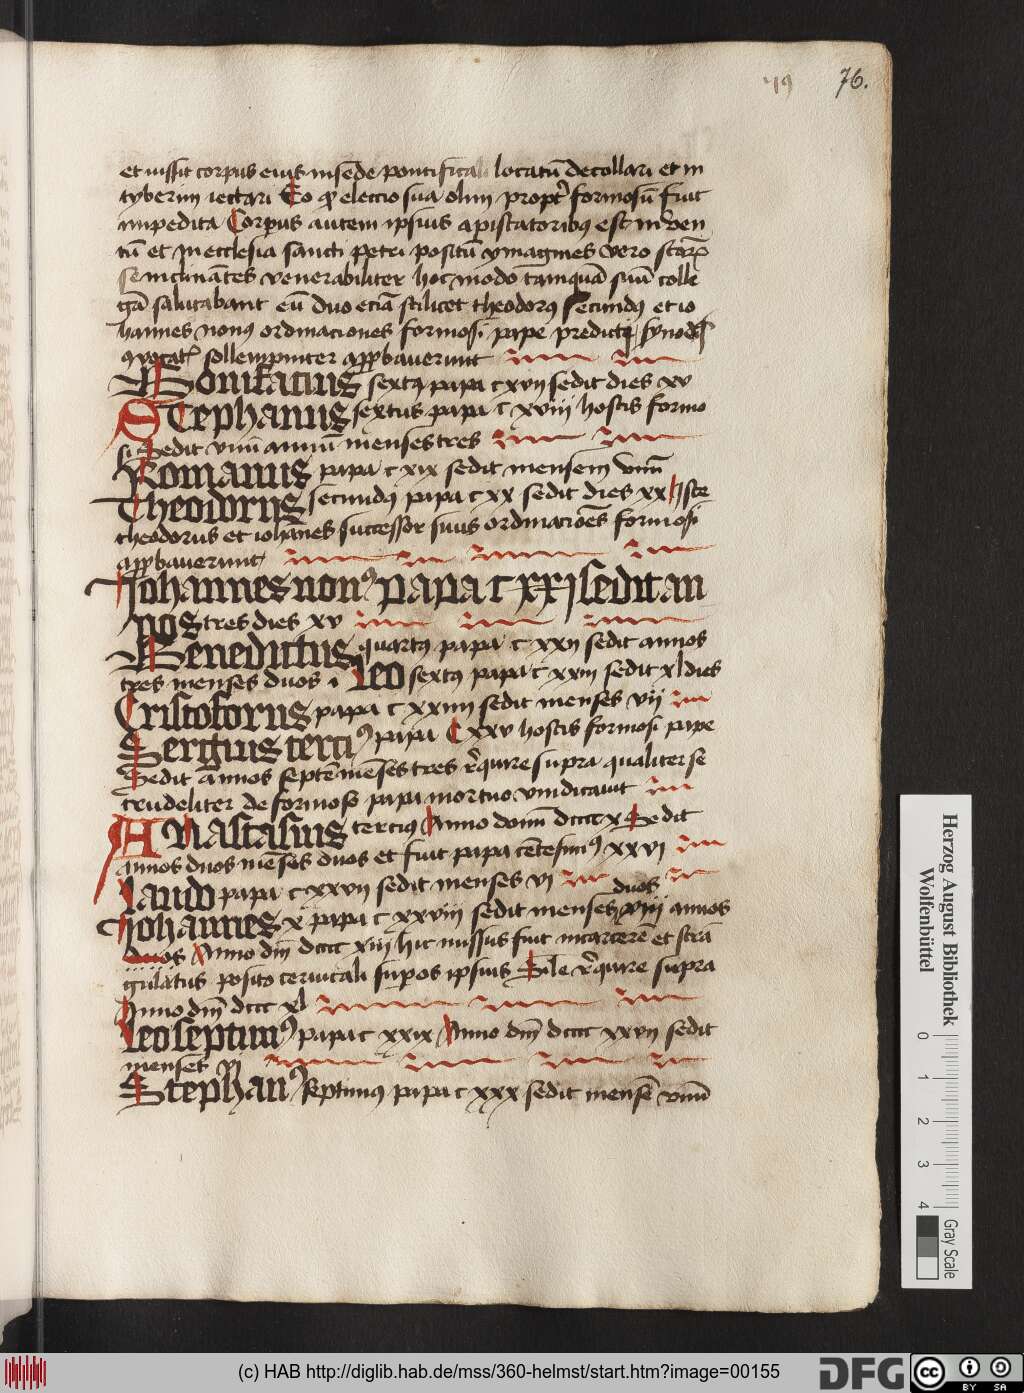 76.
et iussit corpus eius in sede pontifical locatū decollari et in
tyberim iectari Eo ꝙ eleccio sua olim propt formosū fuit
impedita Corpus autem ipsius a piscatoribꝯ est inven
tū et in ecclesia sancti petri positū ymagines vero
se inclinātes venerabiliter hoc modo tamquā suū colle
gā salutabant eū duo eciā scilicet theodorꝯ secundꝯ et io
hannes nonꝯ ordinaciones formosi pape synod
sollempniter appbauerunt
Bonifacius sextꝯ papa c xvij sedit dies xv
Stephanus sextus papa c xviij hostis formo
si Sedit vnū annū menses tres
Romanus papa c xix sedit mensem vnū
Theodorus secundꝯ papa c xx sedit dies xx Iste
theodorus et iohānes successor suus ordinacioēs formosi
appbauerunt
Johannes nonꝯ papa c xxj sedit an
nos tres dies xv
Benedictus quartꝯ papa c xxij sedit annos
tres menses duos i Leo sextꝯ papa c xxiij sedit xl dies
Cristoforus papa c xxiiij sedit menses vij
Sergius terciꝯ papa C xxv hostis formosi pape
Sedit annos septē mēses tres rquire supra qualiter se
crudeliter de formoso papa mortuo vindicauit
Anastasius tercius Anno domī dcccc x Sedit
annos duos mēses duos et fuit papa cētesimꝯ xxvj
Lando papa c xxvij sedit menses vj
duos
Johannes x papa c xxviij sedit menses annos
duos Anno dnī dcccc xiij hic iussus fuit incarcerē et strā
gulatus posito ceruicali sup os ipsius Sile rquire supra
Anno dnī dccc xl
Leo septimꝯ papa c xxix Anno dnī dcccc xxvij sedit
menses vj
Stephanꝯ septimꝯ papa c xxx sedit mensē vnū
Herzog August Bibliothek
Wolfenbüttel
0 1 2 3 4
Gray Scale
(c) HAB http://diglib.hab.de/mss/360-helmst/start.htm?image=00155
DFG
cc BY SA